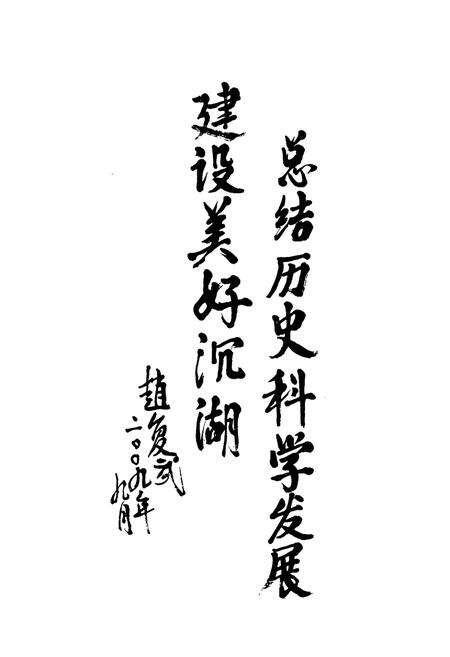 总结历史科学发展
建设美好沉湖
趙复武
二〇〇九年
九月